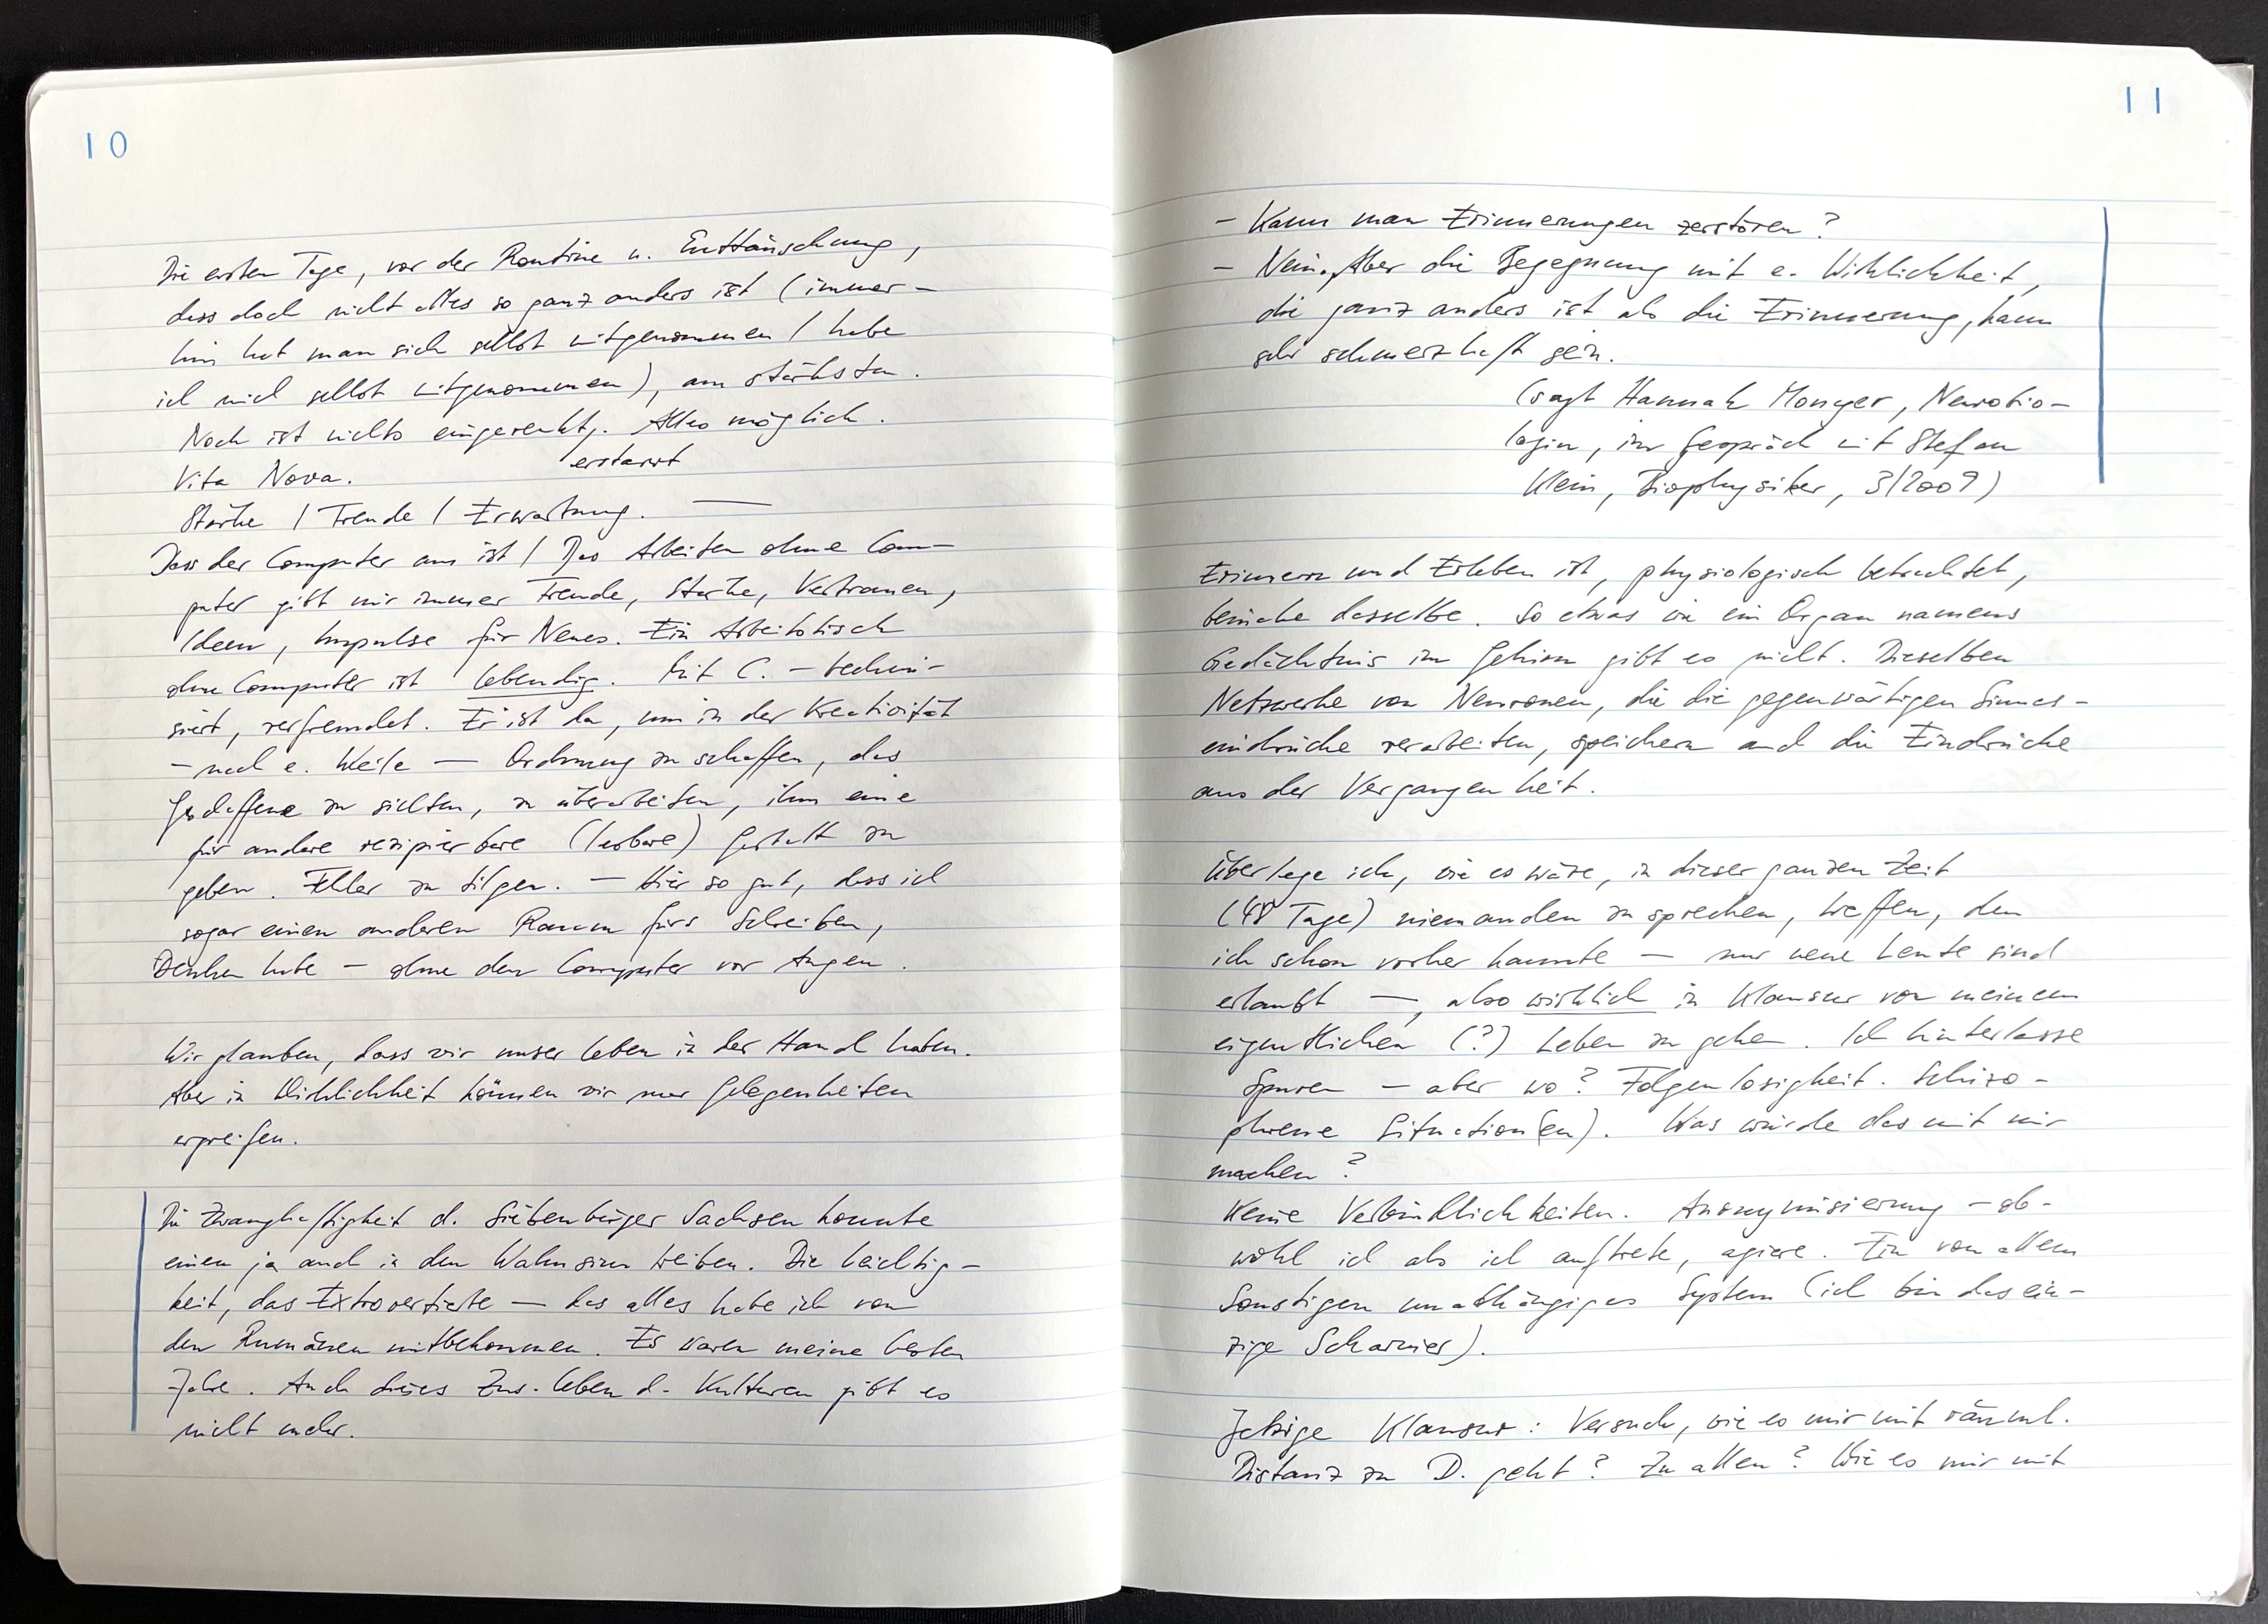 10
Die ersten Tage, vor der Routine u. Enttäuschung,
dass doch nicht alles so ganz anders ist (immer-
hin hat man sich selbst mitgenommen / habe
ich mich selbst mitgenommen), am stärksten.
Noch ist nichts eingerenkt,. Alles möglich.
erstarrt
Vita Nova.
Stärke / Freude / Erwartung. —
Dass der Computer aus ist / Das Arbeiten ohne Com-
puter gibt mir immer Freude, Stärke, Vertrauen,
Ideen, Impulse für Neues. Ein Arbeitstisch
ohne Computer ist lebendig. Mit C. – techni-
siert, verfremdet. Er ist da, um in der Kreativität
– nach e. Weile — Ordnung zu schaffen, das
Geschaffene zu sichten, zu überarbeiten, ihm eine
für andere rezipierbare (lesbare) Gestalt zu
geben. Fehler zu tilgen. — Hier so gut, dass ich
sogar einen anderen Raum fürs Schreiben,
Denken habe – ohne den Computer vor Augen.
Wir glauben, dass wir unser Leben in der Hand haben.
Aber in Wirklichkeit können wir nur Gelegenheiten
ergreifen.
Die Zwanghaftigkeit d. Siebenbürger Sachsen konnte
einen ja auch in den Wahnsinn treiben. Die Leichtig-
keit, das Extrovertierte — das alles habe ich von
den Rumänen mitbekommen. Es waren meine besten
Jahre. Auch dieses Zus.leben d. Kulturen gibt es
nicht mehr.
11
– Kann man Erinnerungen zerstören?
– Nein. Aber die Begegnung mit e. Wirklichkeit,
die ganz anders ist als die Erinnerung, kann
sehr schmerzhaft sein.
(sagt Hannah Monyer, Neurobio-
login, im Gespräch mit Stefan
Klein, Biophysiker, 3/2009)
Erinnern und Erleben ist, physiologisch betrachtet,
beinahe dasselbe. So etwas wie ein Organ namens
Gedächtnis im Gehirn gibt es nicht. Dieselben
Netzwerke von Neuronen, die die gegenwärtigen Sinnes-
eindrücke verarbeiten, speichern auch die Eindrücke
aus der Vergangenheit.
Überlege ich, wie es wäre, in dieser ganzen Zeit
(48 Tage) niemanden zu sprechen, treffen, den
ich schon vorher kannte — nur neue Leute sind
erlaubt —, also wirklich in Klausur von meinem
eigentlichen (?) Leben zu gehen. Ich hinterlasse
Spuren – aber wo? Folgenlosigkeit. Schizo-
phrene Situation(en). Was würde das mit mir
machen?
Keine Verbindlichkeiten. Anonymisierung – ob-
wohl ich als ich auftrete, agiere. Ein von allem
Sonstigen unabhängiges System (ich bin das ein-
zige Scharnier).
Jetzige Klausur: Versuch, wie es mir mit räuml.
Distanz zu D. geht? Zu allen? Wie es mir mit